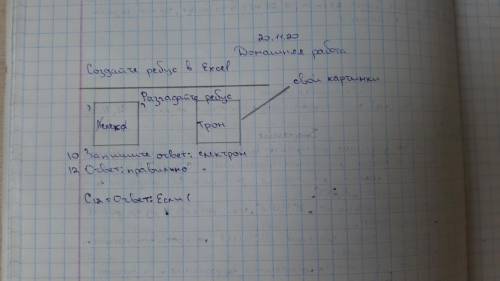 20.11.20
Домашняя работа
Создайте ребус в Excel
свои картинки
Разгадайте ребус
Трон
10 Запишите ответ: електрон
12 Ответ: правильно
C12 = Ответ: Если (